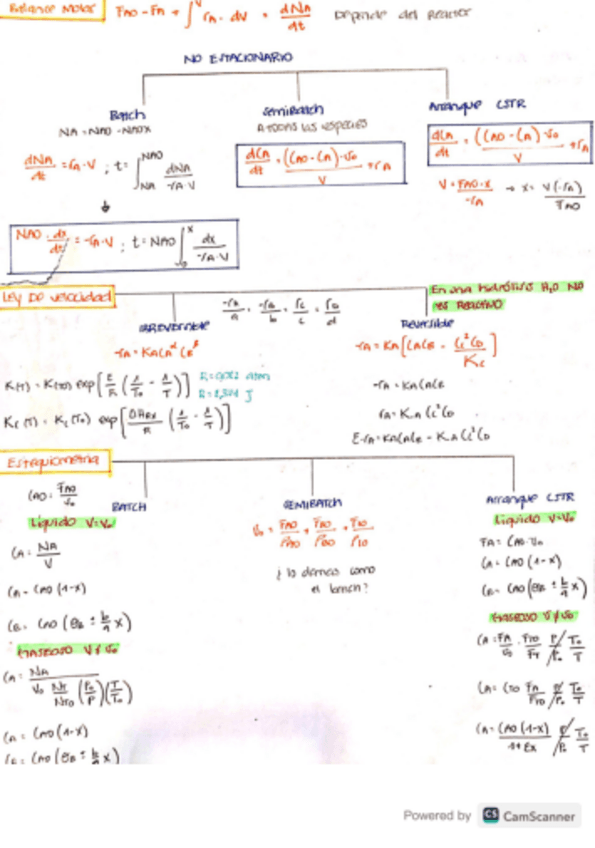 Balance Molar FAO - FA + ∫^V rA · dV = dNA/dt Depende del Reactor
NO ESTACIONARIO
Batch
NA = NAO - NAOX
dNA/dt = rA · V ; t = ∫_NA^NAO dNA/-rA·V
NAO · dx/dt = -rA·V ; t = NAO ∫_0^X dx/-rA·V
SemiBatch
A TODAS LAS ESPECIES
dCA/dt = (CAO - CA) · v0/V + rA
Arranque CSTR
dCA/dt = (CAO - CA) · v0/V + rA
V = FAO · X/-rA → X = V(-rA)/FAO
LEY DE VELOCIDAD
-rA/a = -rB/b = rC/c = rD/d
En una hidrólisis H2O NO ES REACTIVO
IRREVERSIBLE
-rA = KA CA^α CB^β
K(T) = K(T0) exp[E/R (1/T0 - 1/T)]
R = 0,082 atm
R = 8,314 J
KC(T) = KC(T0) exp[ΔHRX/R (1/T0 - 1/T)]
Reversible
-rA = KA [CACB - CC^2CD/KC]
-rA = KACACB
rA = K-A CC^2CD
Σ-rA = KACACB - K-A CC^2CD
Estequiometria
CAO = FAO/v0
BATCH
Líquido V=V0
CA = NA/V
CA = CAO (1-X)
CB = CAO (θB ± b/a X)
GASEOSO V≠V0
CA = NA/V0 NT/NTO (P0/P)(T/T0)
CA = CAO (1-X)
CB = CAO (θB ± b/a X)
SEMIBATCH
V0 = FAO/ρAO + FBO/ρBO + FIO/ρIO
¿ lo demás como
el batch?
Arranque CSTR
Líquido V=V0
FA = CAO·v0
CA = CAO (1-X)
CB = CAO (θB ± b/a X)
GASEOSO V≠V0
CA = FA/v0 · FTO/FT · P/P0 · T0/T
CA = CTO FA/FTO P/P0 T0/T
CA = CAO (1-X)/1+εX P/P0 T0/T
Powered by CS CamScanner